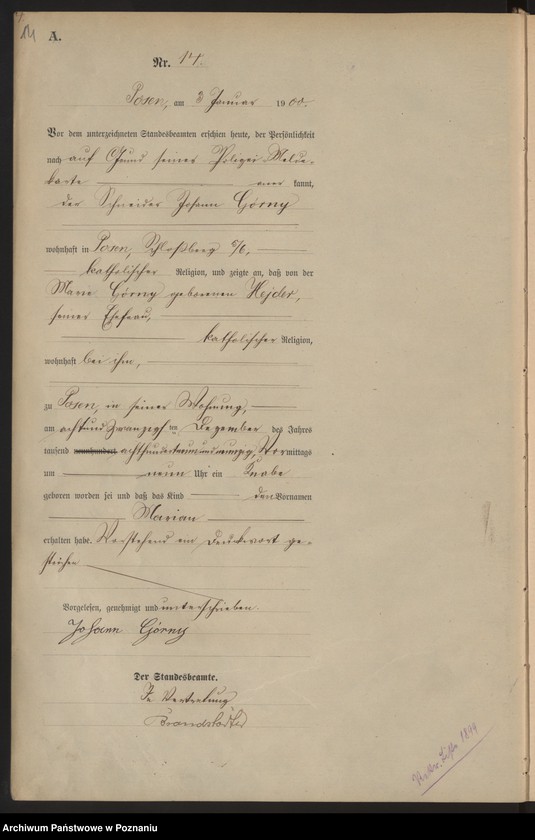 14
A.
Nr. 14.
Posen, am 3 Januar 1900.
Vor dem unterzeichneten Standesbeamten erschien heute, der Persönlichkeit
nach auf Grund seiner Polizei-Melde-
karte kannt,
der Schneider Johann Górny
wohnhaft in Posen, Schloßberg
katholischer Religion, und zeigte an, daß von der
Marie Górny geborenen Hejder,
seiner Ehefrau,
katholischer Religion,
wohnhaft bei ihm,
zu Posen, in seiner Wohnung,
am achtundzwanzigsten Dezember des Jahres
tausend neunhundert achthundertneunundneunzig, Vormittags
um neun Uhr ein Knabe
geboren worden sei und daß das Kind den Vornamen
Marian
erhalten habe. Vorstehend ein Druckwort ge-
strichen
Vorgelesen, genehmigt und unterschrieben.
Johann Górny
Der Standesbeamte.
In Vertretung
Brandstädter
1899
Archiwum Państwowe w Poznaniu